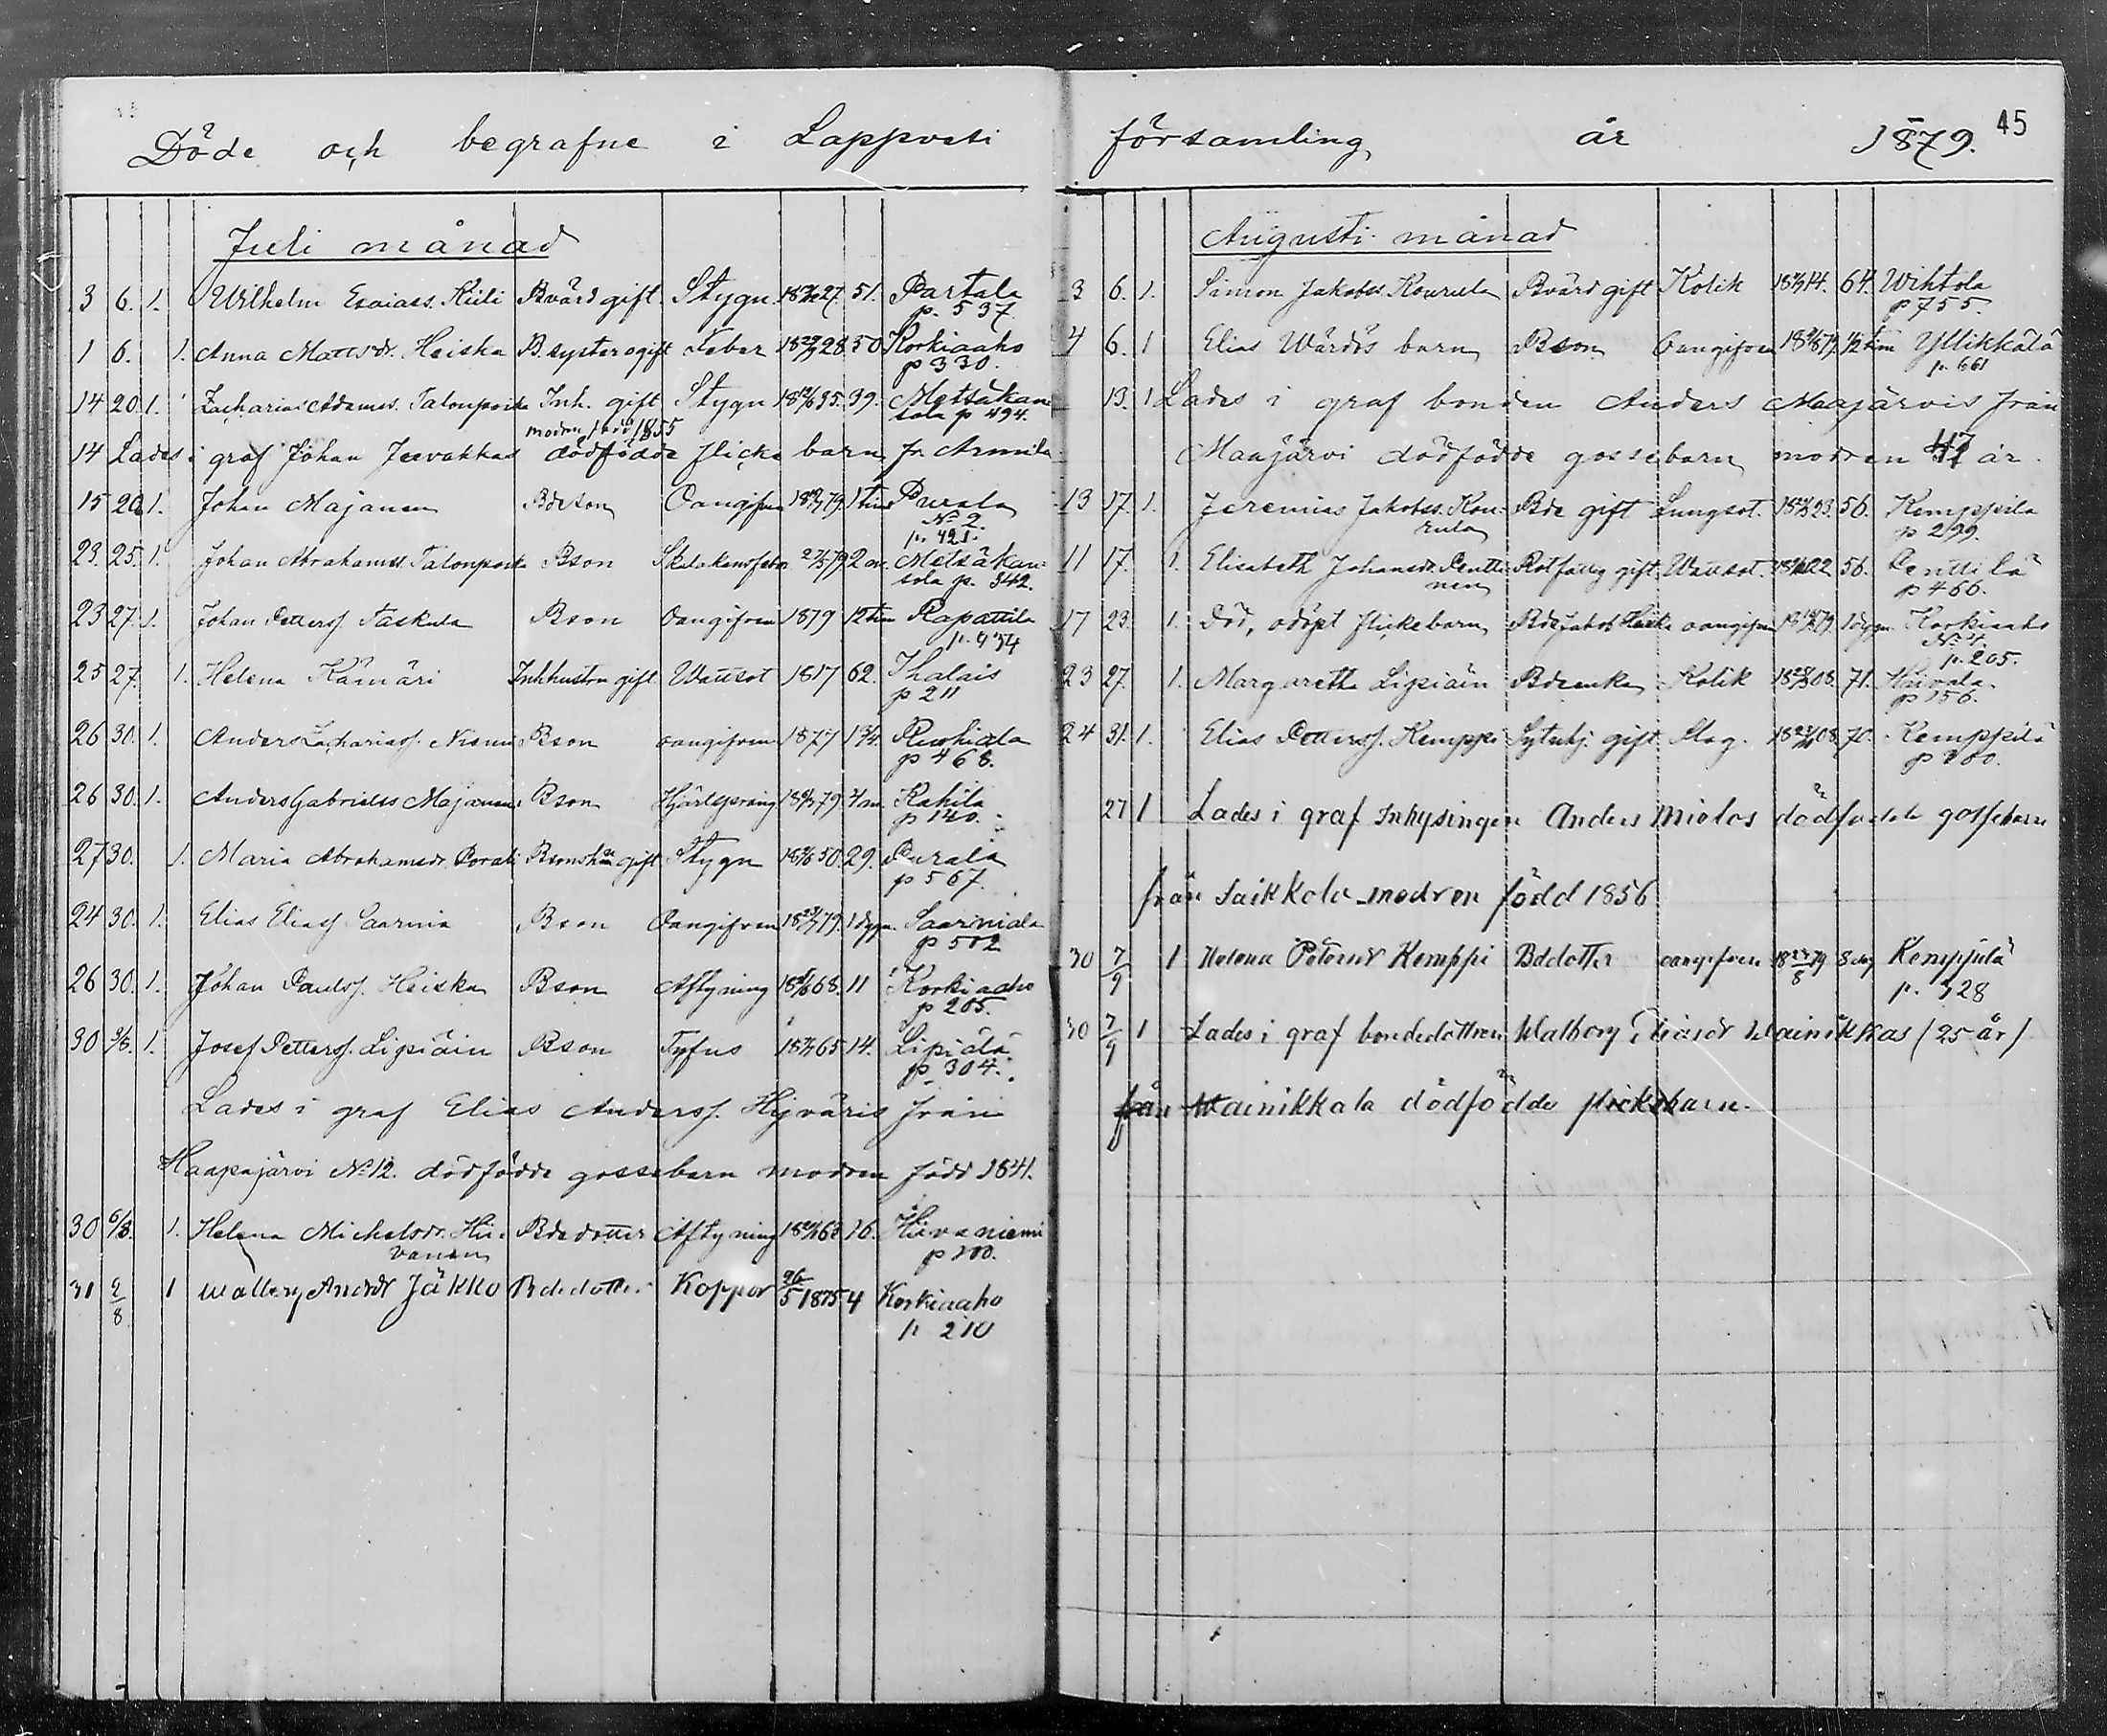 Döde och begrafne i Lappvesi
Juli månad
3 6. 1. Wilhelm Esaiass. Kiili Bvärd gift. Stygn. 27. 51. Partala
p. 537
1 6. 1. Anna Mattsdr. Heiska B.syster ogift Feber 28. 50 Korkiaaho
p 330.
14 20. 1. Zacharias Adamss. Talonpoika Inh. gift Stygn 35. 39. Metsäkan
sola p 494.
modren född 1855
14 Lades i graf Johan Juvakkas dödfödde flicke barn fr. Armila
15 20. 1. Johan Majanen Bdeson Oangifven 79. 1 tim Purala
No 2.
p. 421.
23. 25. 1. Johan Abrahamss. Talonpoika Bson 79 2 Metsäkan-
sola p. 342.
23 27. 1. Johan Petterss. Taskula Bson Oangifven 1879 12 tim Rapattila
p. 434
25 27. 1. Helena Kämäri Inhhustru gift. Wattsot 1817 62. Ihalais
p 211
26 30. 1. Anders Zachariass. Niemi Bson oangifven 1877 1¾. Ruohiala
p 468.
26 30. 1. Anders Gabrielss Majanen Bson 79 4 Kahila
p 140.
27 30. 1. Maria Abrahamsdr. gift Stygn 50. 29. Purala
p 567.
24 30. 1. Elias Eliass. Saarnia Bson Oangifven 79. 1 dygn. Saarniala
p 502
26 30. 1. Johan Paulss. Heiska Bson Aftyning 68. 11 Korkiaaho
p 205.
30 3/8. 1. Josef Petterss. Lipiäin Bson Tyfus 65 14. Lipiälä.
p. 304.
Lades i graf Elias Anderss. Hyväris från
Haapajärvi No 12. dödfödde gossebarn modren född 1841.
30 6/8. 1. Helena Michelsdr. Hii- Bdedotter Aftyning 16. Hiivaniemi
vanen p 200.
31 1 Walborg Andrdr Jäkko Bdedotter Koppor 26/5 1875 4 Korkiaaho
p. 210
församling år 1879. 45
Augusti månad
3 6. 1. Simon Jakobss. Kourula Bvärd gift Kolik 14. 64. Wihtola
p 755.
4 6. 1 Elias Wärdös barn Bson Oangifven 79. ½ tim Yllikkälä
p. 661
13. 1 Lades i graf bonden Anders Maajärvis från
Maajärvi dödfödde gossebarn modren 47 år.
13 17. 1. Jeremias Jakobss. Kou- Bde gift Lungsot. 23. 56. Kemppila
rula p 299.
11 17. 1. Elisabeth Johansdr. Pentti- Rotfattig gift. Wattsot. 22 56. Penttilä
nen p 466.
17 23. 1. Död, odöpt flickebarn oangifven 79. 1 dygn Korkiaaho
p. 205.
23 27. 1. Margaretha Lipiäin Bdeenka Kolik 08. 71. Hiivala
p 156.
24 31. 1. Elias Petterss. Kemppi Sytnhj. gift. Slag. 08. 70. Kemppilä
p 300.
27 1 Lades i graf Inhysingen Anders Miolos dödfödde gossebarn
från Saikkola modren född 1856
30 7/9 1 Helena Petersdr Kemppi Bddotter oangifven 79 8 Kemppilä
p. 328
30 7/9 1 Lades i graf bondedottren Walborg Eliasdr Wainikkas (25 år)
från Wainikkala dödfödde flickebarn.